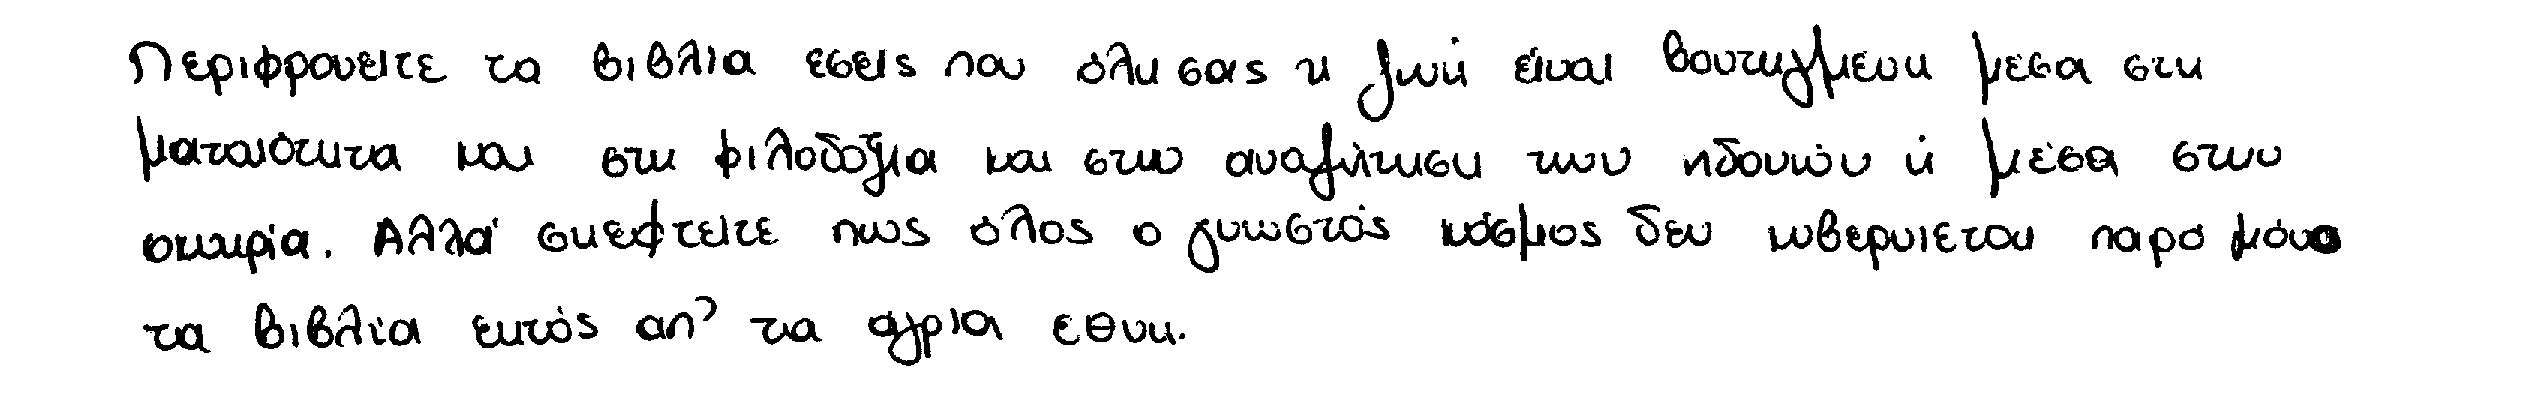 Περιφρονείτε τα βιβλία εσείς που όλη σας η ζωή είναι βουτηγμένη μέσα στη
ματαιότητα και στη φιλοδοξία και στην αναζήτηση των ηδονών ή μέσα στην
οκνηρία. Αλλά σκεφτείτε πως όλος ο γνωστός κόσμος δεν κυβερνιέται παρά μόνο
τα βιβλία εκτός απ' τα άγρια έθνη.